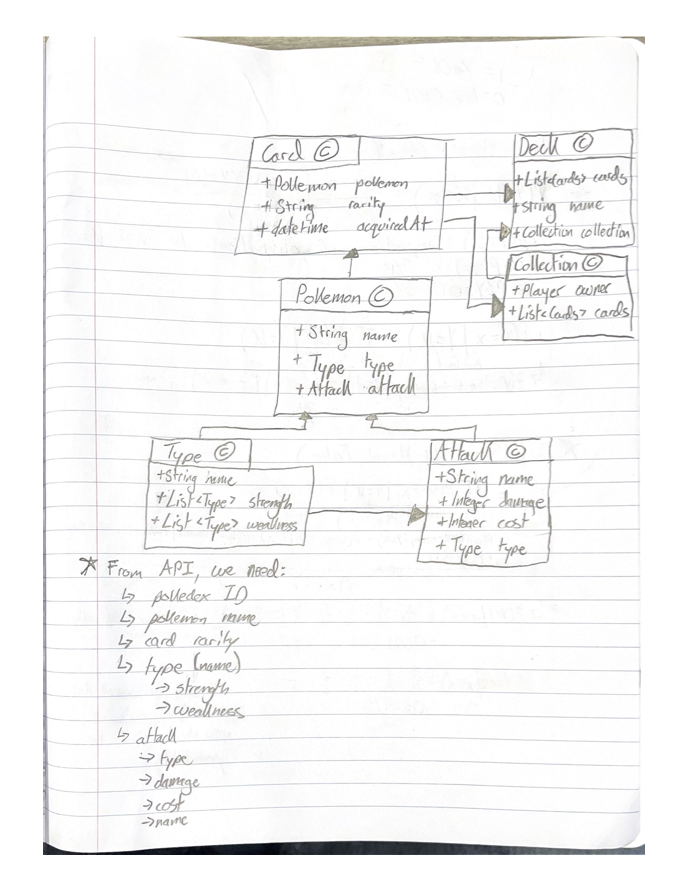 Card ©
+Pokemon pokemon
+String rarity
+datetime acquiredAt
Deck ©
+List<Cards> cards
+string name
+Collection collection
Collection ©
+Player owner
+List<Cards> cards
Pokemon ©
+String name
+Type type
+Attack attack
Type ©
+String name
+List<Type> strength
+List<Type> weakness
Attack ©
+String name
+Integer damage
+Integer cost
+Type type
* From API, we need:
↳ pokedex ID
↳ pokemon name
↳ card rarity
↳ type (name)
→ strength
→ weakness
↳ attack
→ type
→ damage
→ cost
→ name